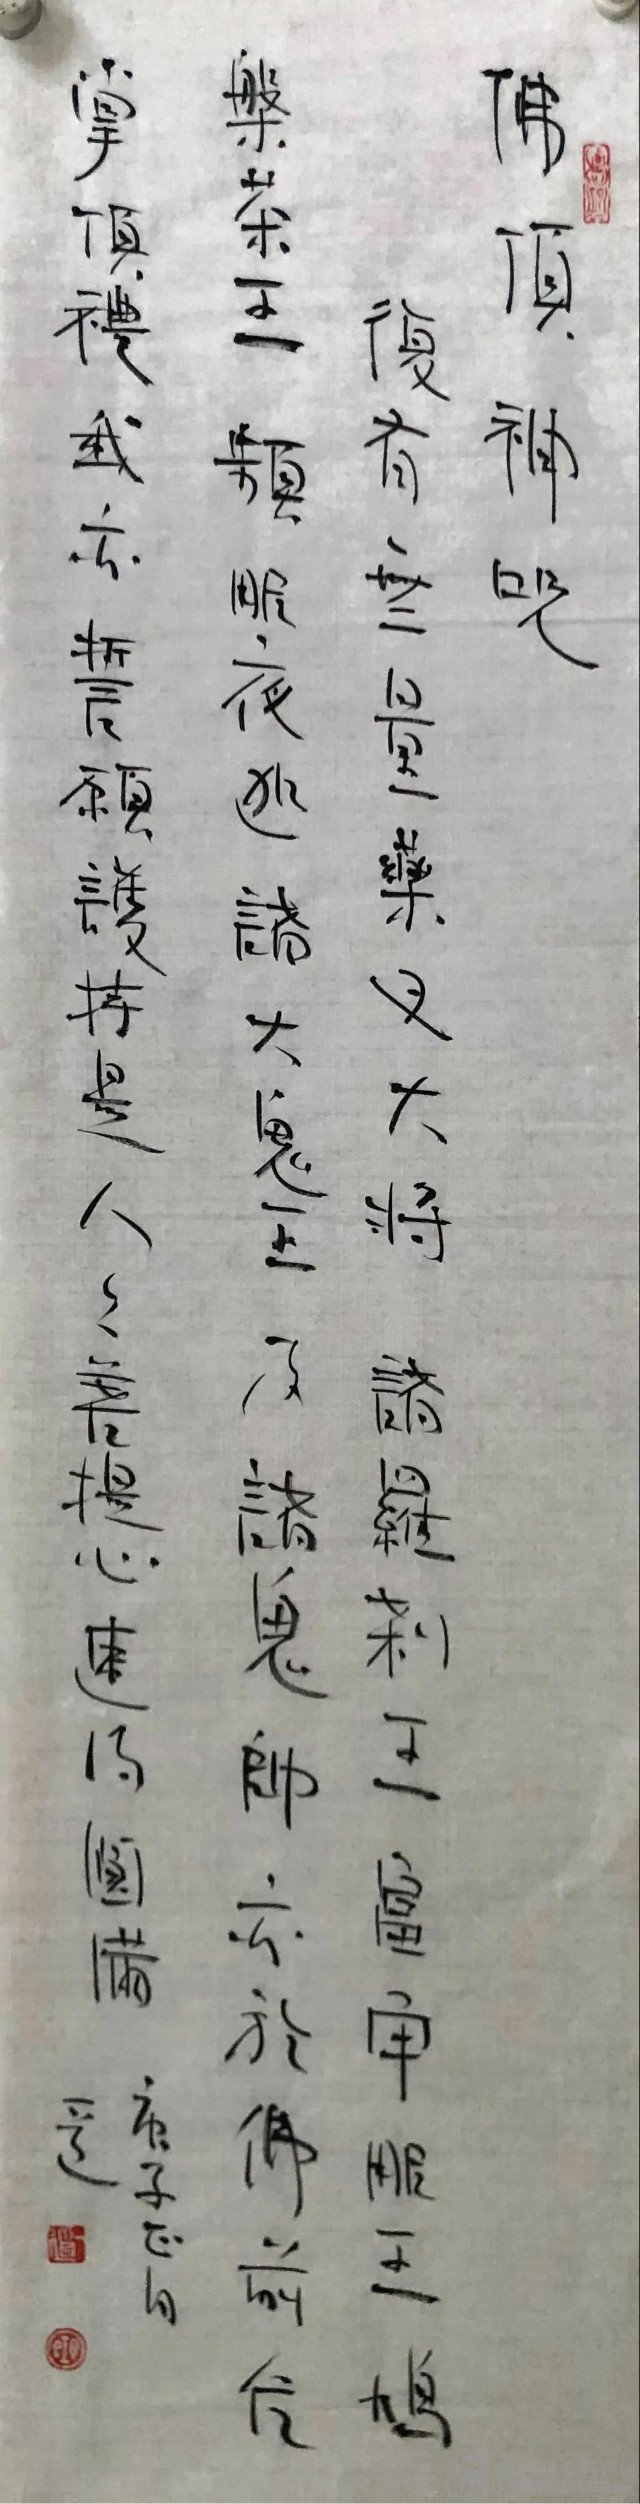 佛頂神咒
復有無量藥叉大將諸羅剎王富單那王鳩
槃茶王頻那夜迦諸大鬼王及諸鬼帥亦於佛前合
掌頂禮我亦誓願護持是人令菩提心速得圓滿
庚子正月